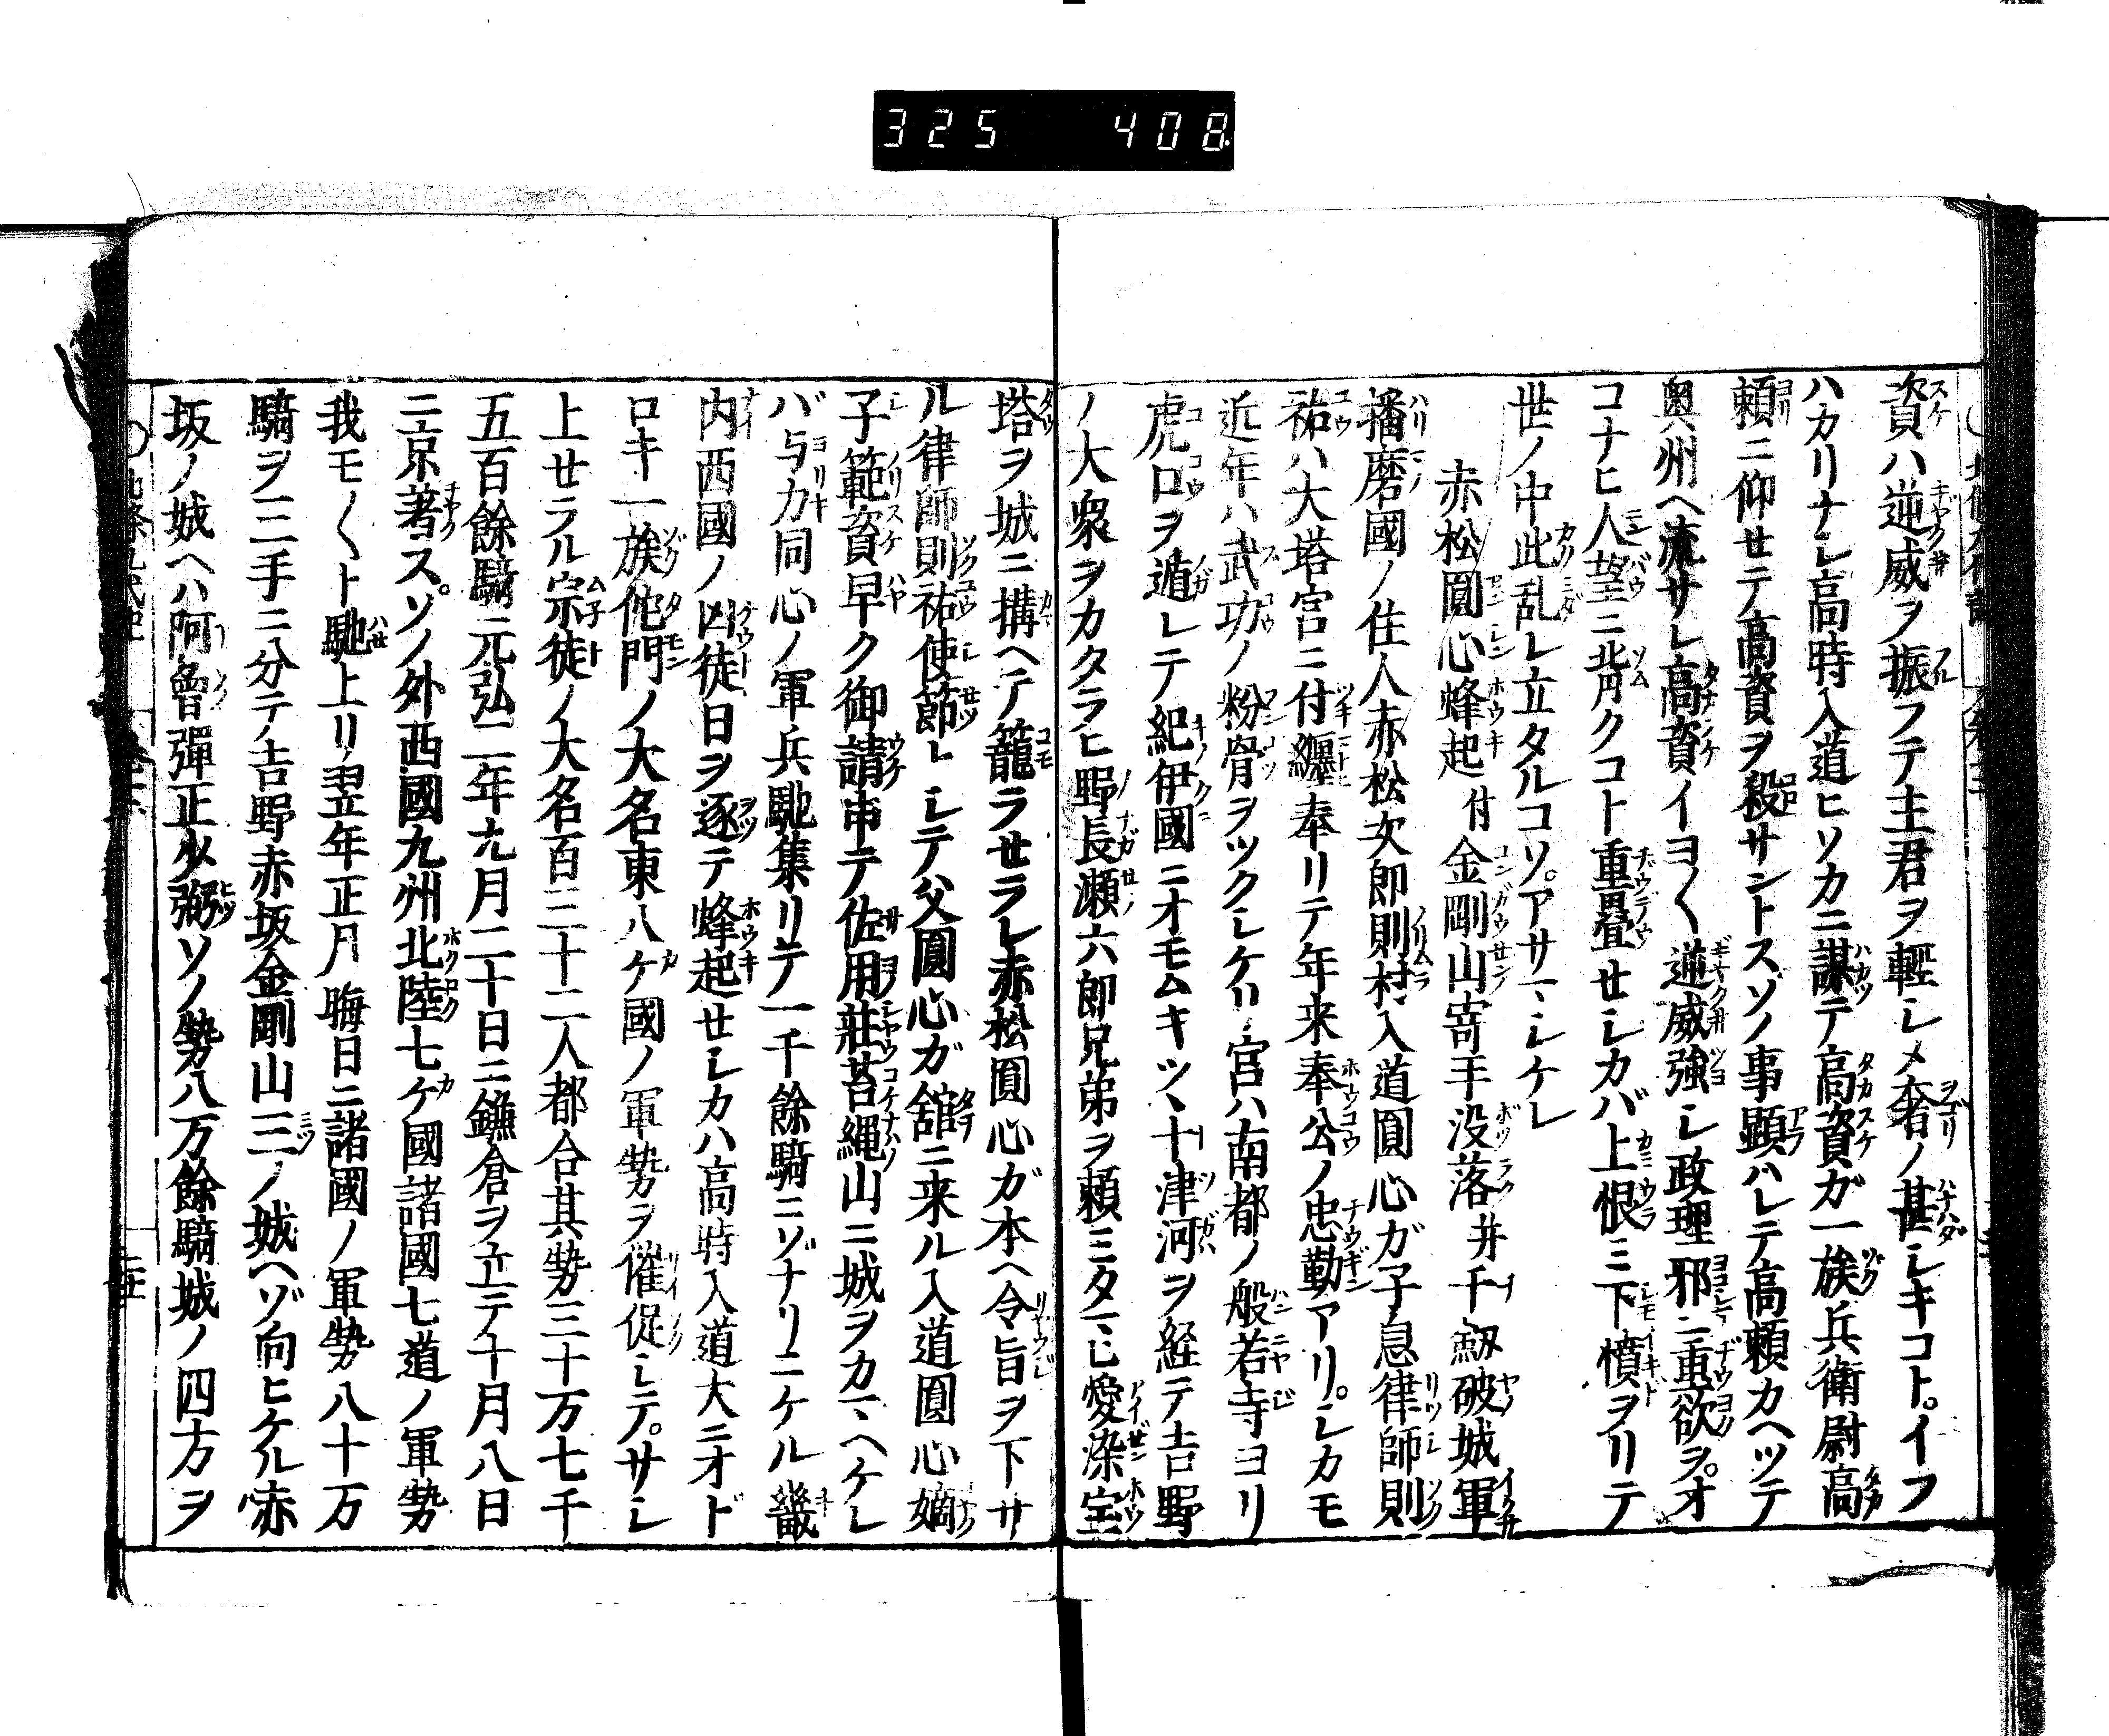 325 408
資ハ逆威ヲ振フテ主君ヲ輕シメ奢ノ甚シキコト。イフ
ハカリナシ高時入道ヒソカニ謀テ高資ガ一族兵衛尉高
頼ニ仰セテ高資ヲ殺サントスソノ事顕ハレテ高頼カヘツテ
奥州ヘ流サレ高資イヨ〱逆威強シ政理邪ニ重欲ヲ。オ
コナヒ人望ニ背クコト重畳セシカバ上恨ミ下憤ヲリテ
世ノ中此乱レ立タルコソ。アサマシケレ
赤松圓心蜂起付金剛山寄手没落并千劔破城軍
播磨國ノ住人赤松次郎則村入道圓心ガ子息律師則
祐ハ大塔宮ニ付纏奉リテ年来奉公ノ忠勤アリ。シカモ
近年ハ武功ノ粉骨ヲツクシケリ宮ハ南都ノ般若寺ヨリ
虎口ヲ遁レテ紀伊國ニオモムキツヽ十津河ヲ経テ吉野
ノ大衆ヲカタラヒ野長瀬六郎兄弟ヲ頼ミタマヒ愛染宝
塔ヲ城ニ搆ヘテ籠ラセラレ赤松圓心ガ本ヘ令旨ヲ下サ
ル律師則祐使節トシテ父圓心ガ舘ニ来ル入道圓心嫡
子範資早ク御請申テ佐用莊苔縄山ニ城ヲカマヘケレ
バ与力同心ノ軍兵馳集リテ一千餘騎ニゾナリニケル畿
内西國ノ凶徒日ヲ逐テ蜂起セシカハ高時入道大ニオド
ロキ一族佗門ノ大名東八ケ國ノ軍勢ヲ催促シテ。サシ
上セラル宗徒ノ大名百三十二人都合其勢三十万七千
五百餘騎元弘二年九月二十日ニ鎌倉ヲ立テ十月八日
ニ京著ス。ソノ外西國九州北陸七ケ國諸國七道ノ軍勢
我モ〱ト馳上リ翌年正月晦日ニ諸國ノ軍勢八十万
騎ヲ三手ニ分テ吉野赤坂金剛山三ノ城ヘゾ向ヒケル赤
坂ノ城ヘハ阿曾彈正少弼ソノ勢八万餘騎城ノ四方ヲ